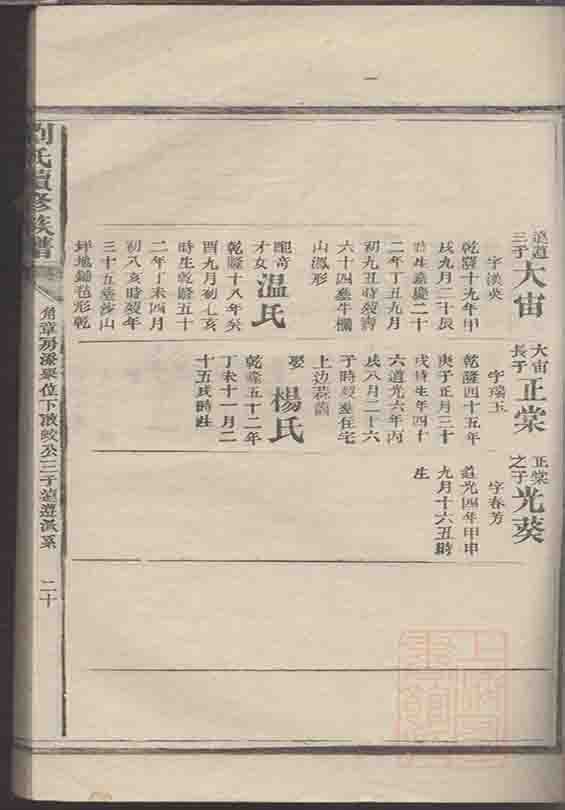 遠道
三子
大宙
字漢英
乾隆十九年甲
戌九月二十辰
時生嘉慶二十
二年丁丑九月
初九丑時歿壽
六十四塟牛欄
山鳳形
配奇
才女
温氏
乾隆十八年癸
酉九月初七亥
時生乾隆五十
二年丁未四月
初八亥時歿年
三十五塟沙山
坪地鋪毡形乾
大宙
長子
正棠
字瑞玉
乾隆四十五年
庚子正月三十
戌時生年四十
六道光六年丙
戌八月二十六
子時歿塟住宅
上边蒜園
娶
楊氏
乾隆五十二年
丁未十一月二
十五戌時生
正棠
之子
光葵
字春芳
道光四年甲申
九月十六丑時
生
劉氏續修族譜
角章房派單位下
公三子遠道派系
二十